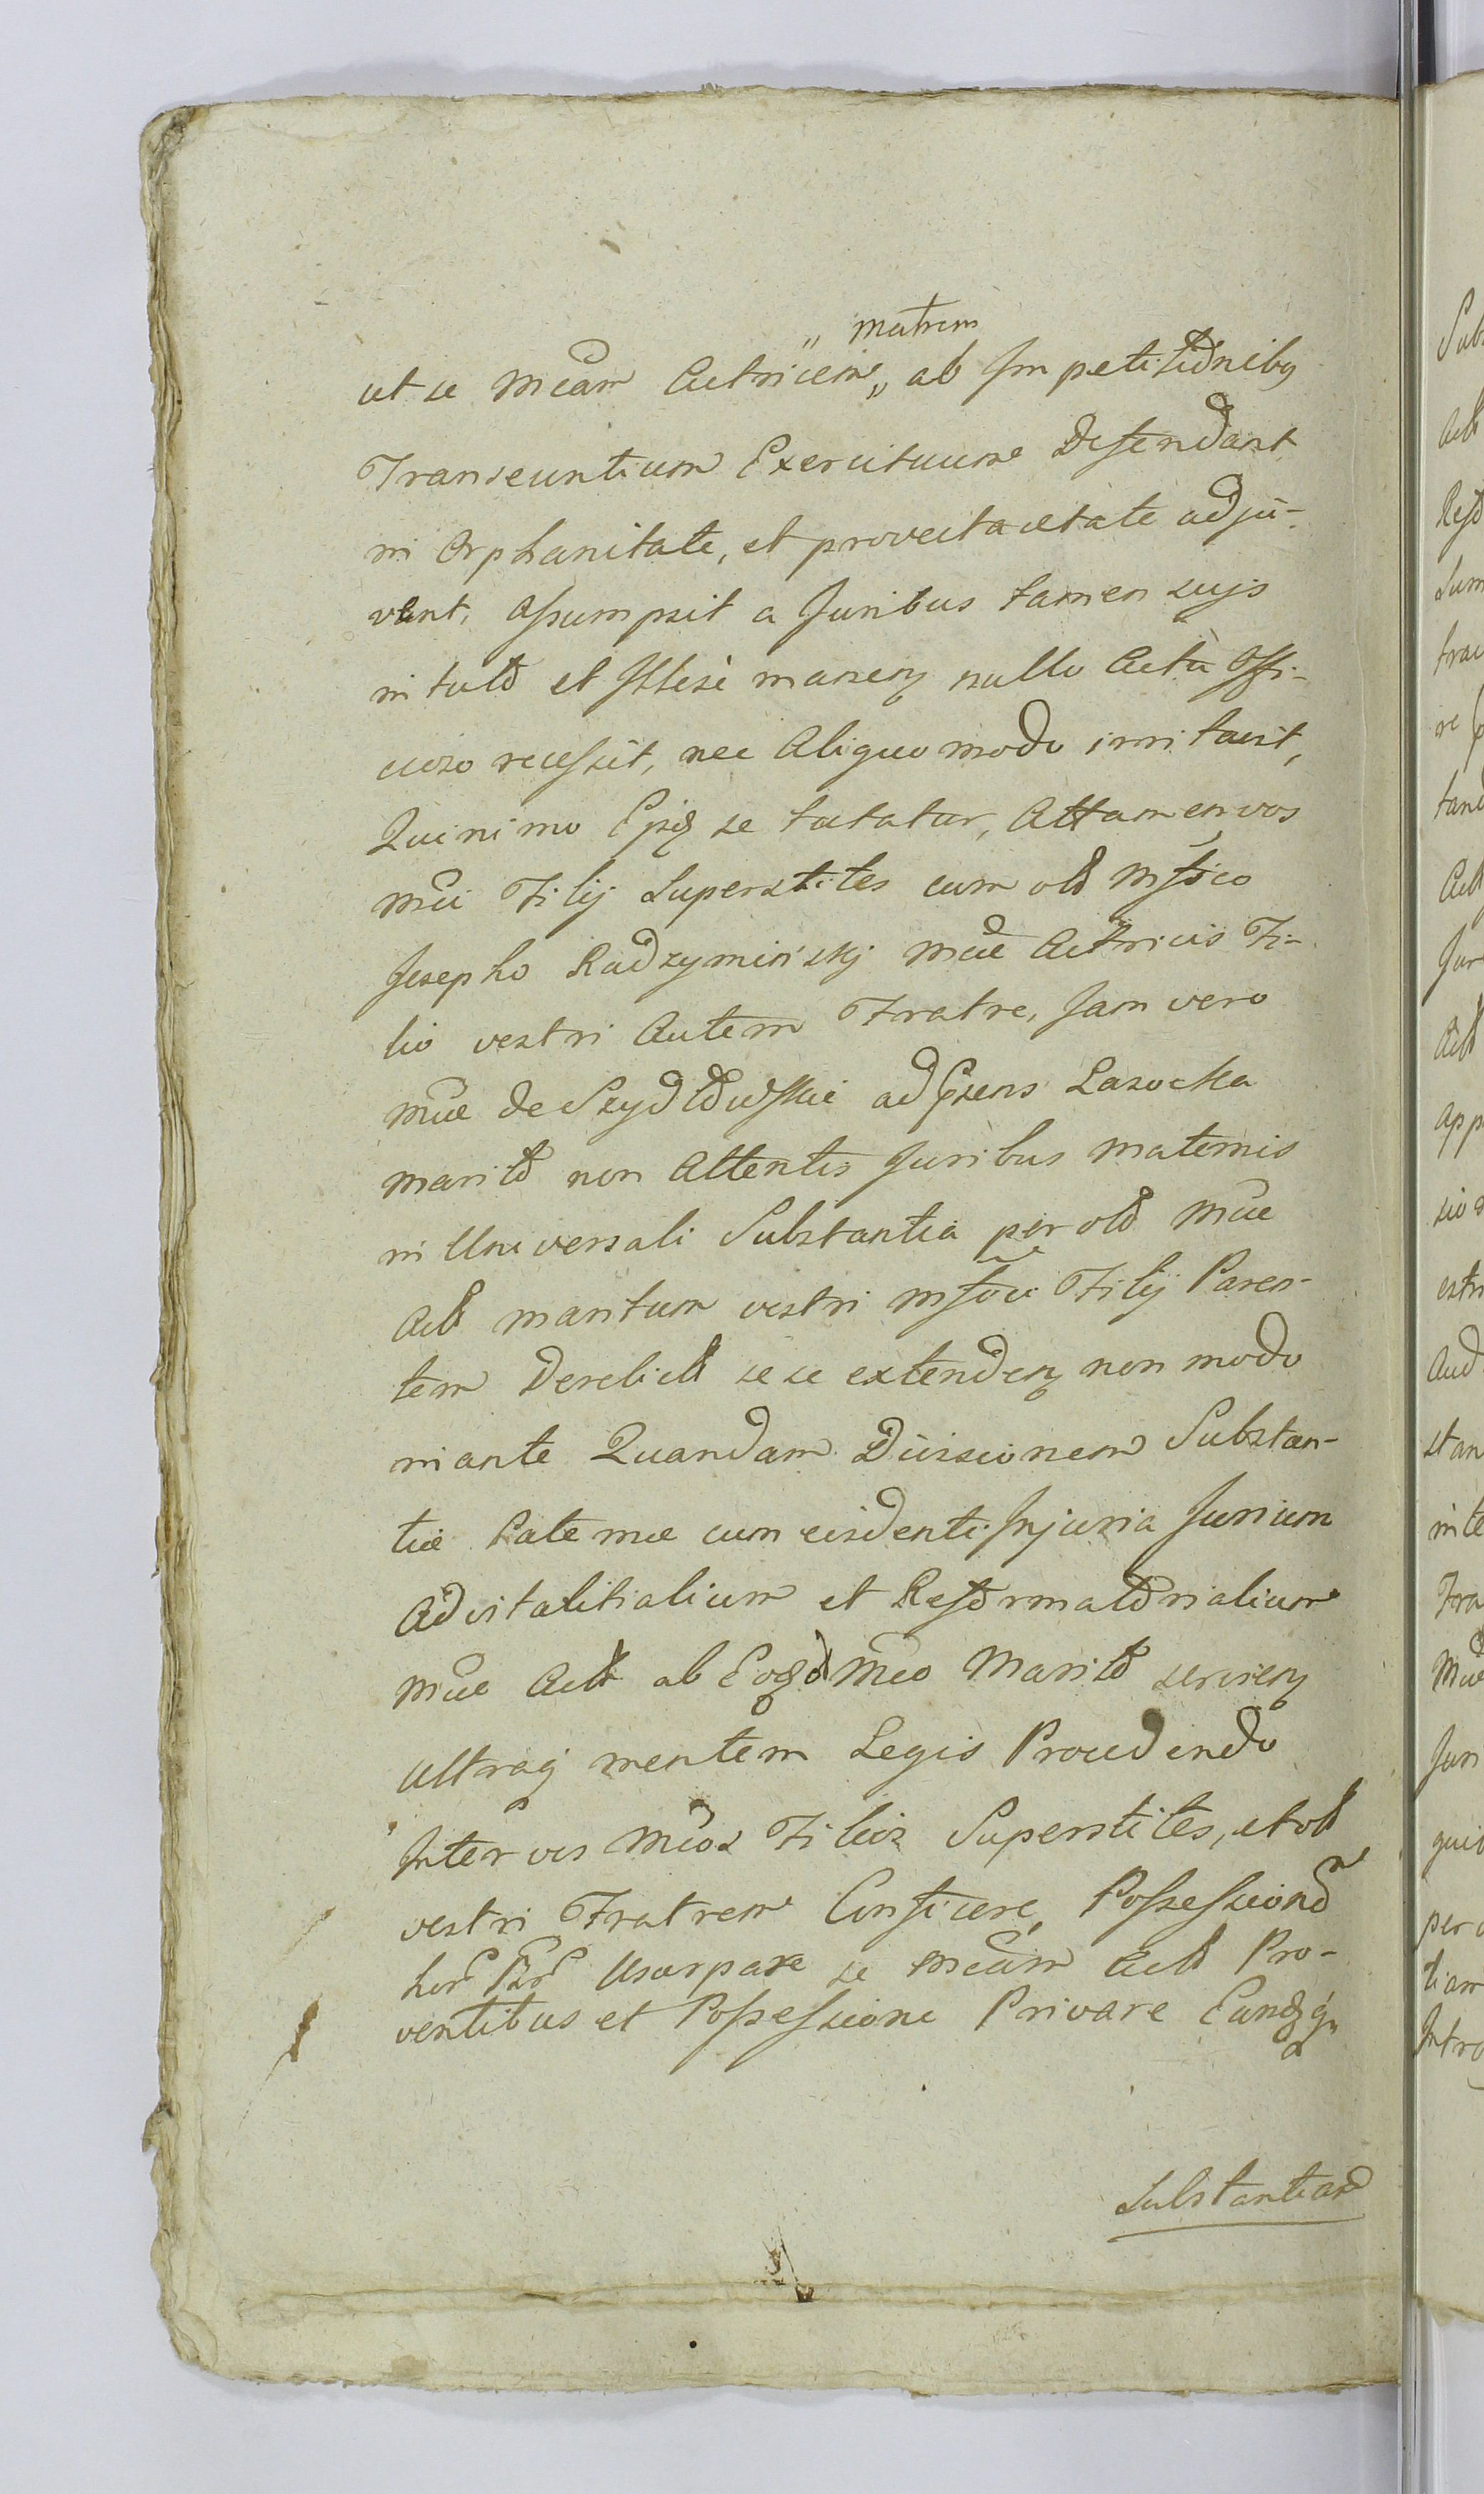 matrem
ut se Mcam Actricem ab Impetitionibus
Transeuntium Exercituum Defendant
in Orphanitate, et provecta aetate adju-
vent, Assumpsit a Juribus tamen suis
in toto et Illesè manens nullo Actu Offi-
cioso recessit, nec Aliquo modo irritavit,
Quinimo se tutatur, Attamen vos
Mci Filij Superstites cum olo
Josepho Radzyminskj Mcae Actricis Fi-
lio vestri Autem Fratre, Jam vero
Mcae de Szydłowskie adpraesens Lasocka
marito non Attentis Juribus Maternis
in Universali Substantia per olo Mcae
Act maritum vestri Filij Paren-
tem Derelict sese extenden non modo
in ante Quandam Divisionem Substan-
tiae Paternae cum evidenti Injuria Jurium
Advitalitialium et Reformatorialium
Mcae Act ab Mco Marito servien
ultraq mentem Legis Procedendo
Inter vos Mcos Filios Superstites, et olo
vestri Fratrem Conficere, Possessionem
hor Usurpare se Mcam Act Pro-
ventibus et Possessione Privare
Substantiar